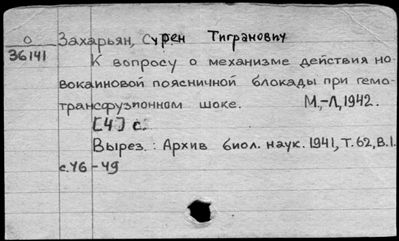 О Захарьян, Сурен Тигранович
36141
К вопросу о механизме действия но-
вокаиновой поясничной блокады при гемо-
трансфузионном шоке. М.-Л, 1942.
[4] с.
Вырез.: Архив биол. наук. 1941, Т. 62, В. 1.
с. 46 - 49